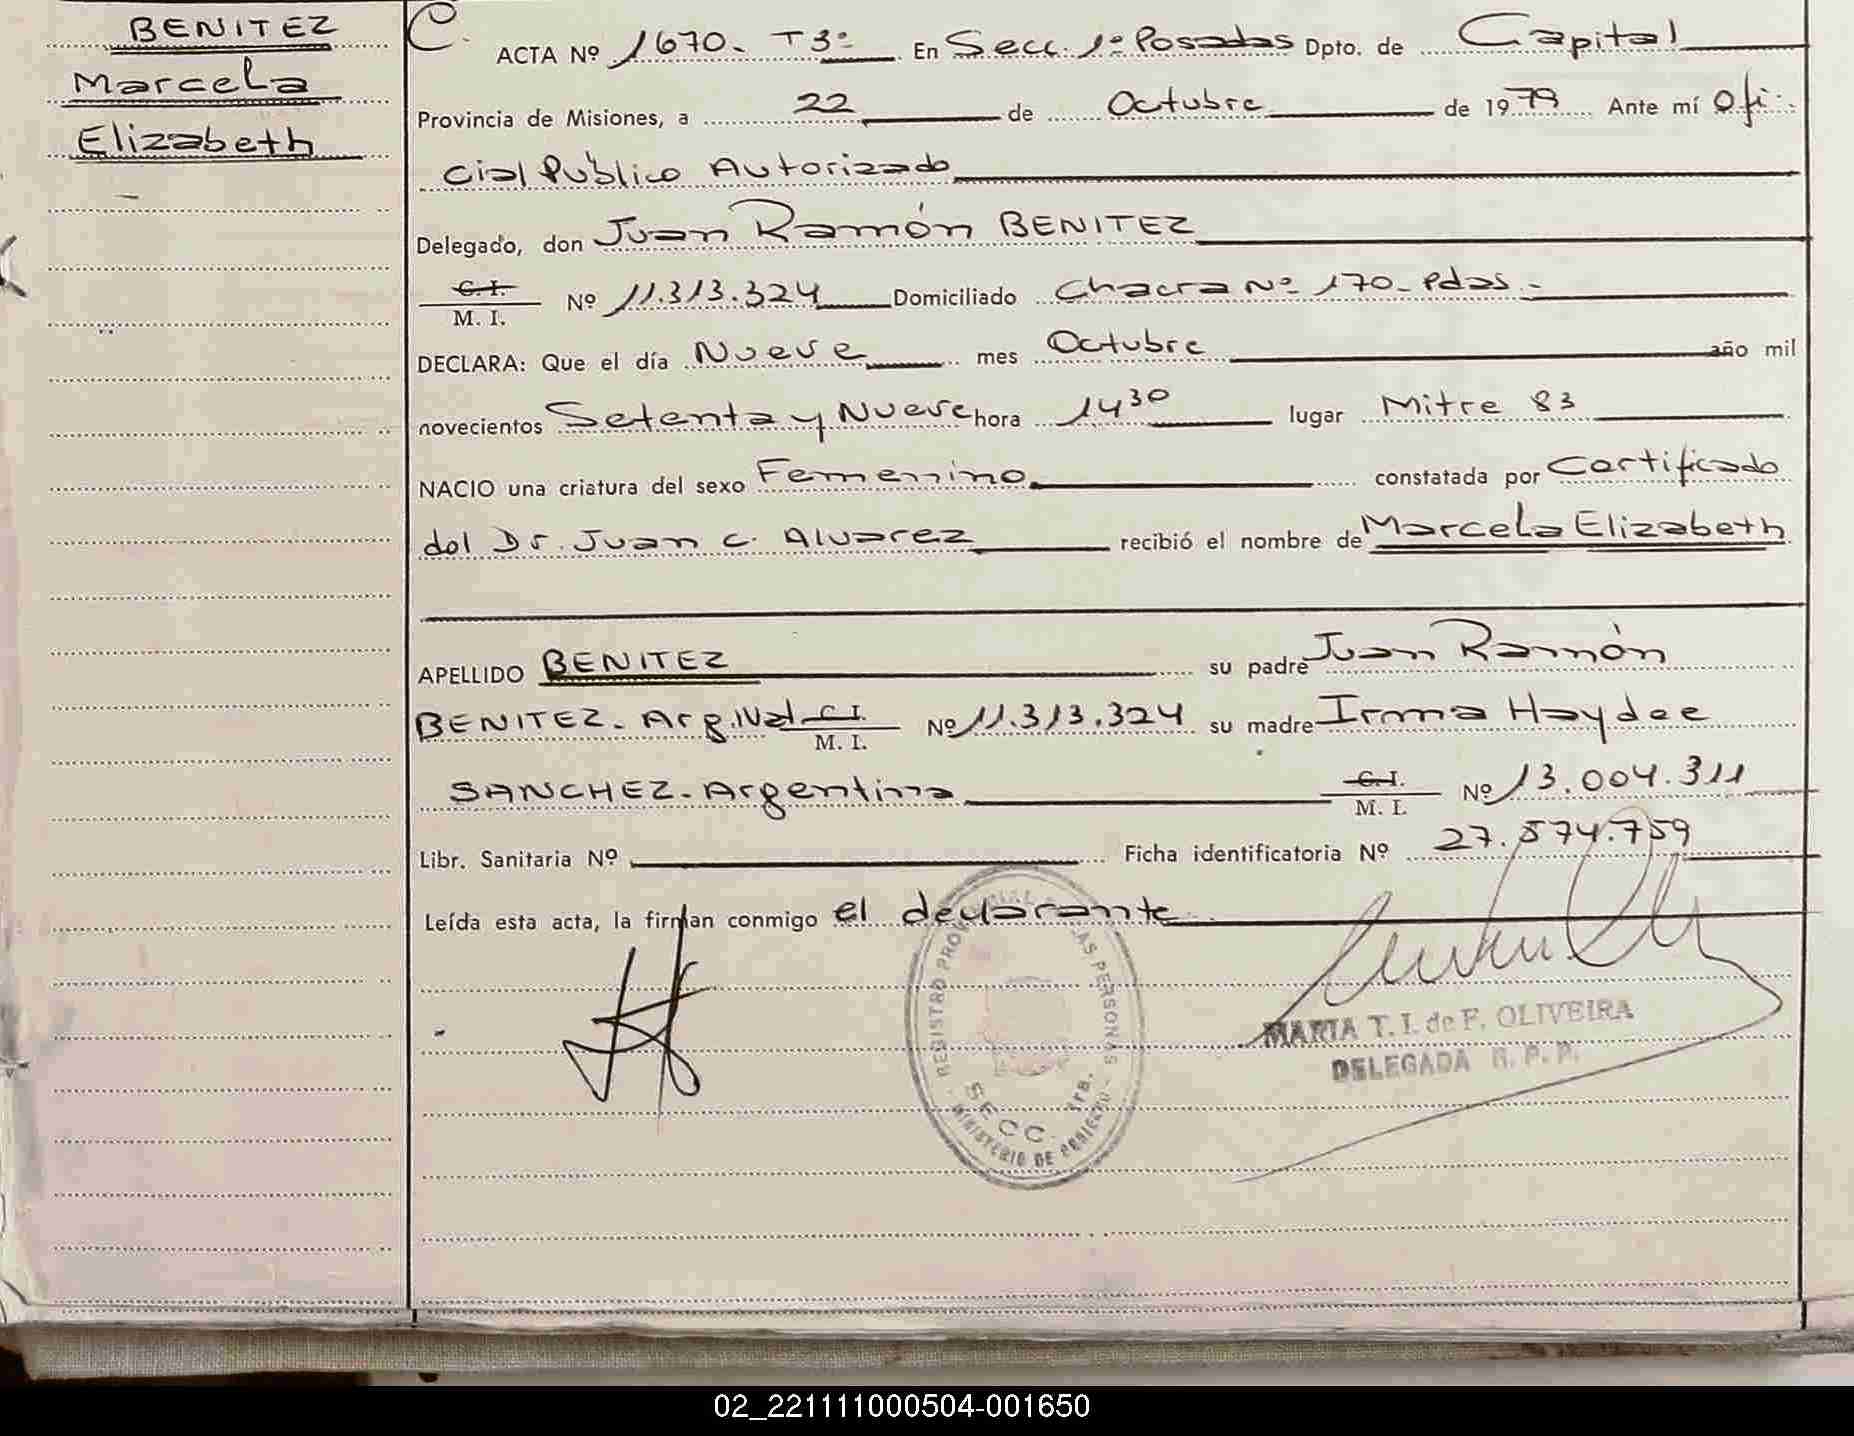 BENITEZ
Marcela
Elizabeth
C. ACTA Nº 1670. T3º En Secc. 1º Posadas Dpto. de Capital
Provincia de Misiones, a 22 de Octubre de 1979 Ante mí Ofi-
cial Público Autorizado
Delegado, don Juan Ramón BENITEZ
C. I.
M. I. Nº 11.313.324 Domiciliado Chacra Nº 170-Pdas.-
DECLARA: Que el día Nueve mes Octubre año mil
novecientos Setenta y Nueve hora 14 30 lugar Mitre 83
NACIO una criatura del sexo Femenino constatada por Certificado
del Dr. Juan C. Alvarez recibió el nombre de Marcela Elizabeth
APELLIDO BENITEZ su padre Juan Ramón
BENITEZ. Arg.Nat. C. I.
M. I. Nº 11.313.324 su madre Irma Haydee
SANCHEZ. Argentina C. I.
M. I. Nº 13.004.311
Libr. Sanitaria Nº Ficha identificatoria Nº 27.574.759
Leída esta acta, la firman conmigo el declarante.
REGISTRO PROVINCIAL LAS PERSONAS
SECC. 1ra.
MINISTERIO DE
MARIA T. I. de F. OLIVEIRA
DELEGADA R. P. P.
02_221111000504-001650